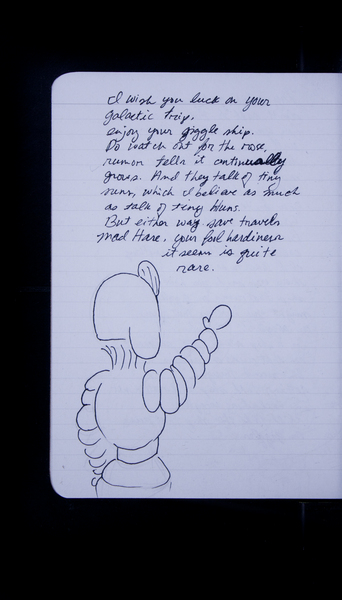 I wish you luck on your
galactic trip,
enjoy your giggle ship.
Do watch out for the rose,
rumor tells it continually
grows. And they talk of tiny
suns, which I believe as much
as talk of tiny Huns.
But either way save travels
Mad Hare, your fool hardiness
it seems is quite
rare.